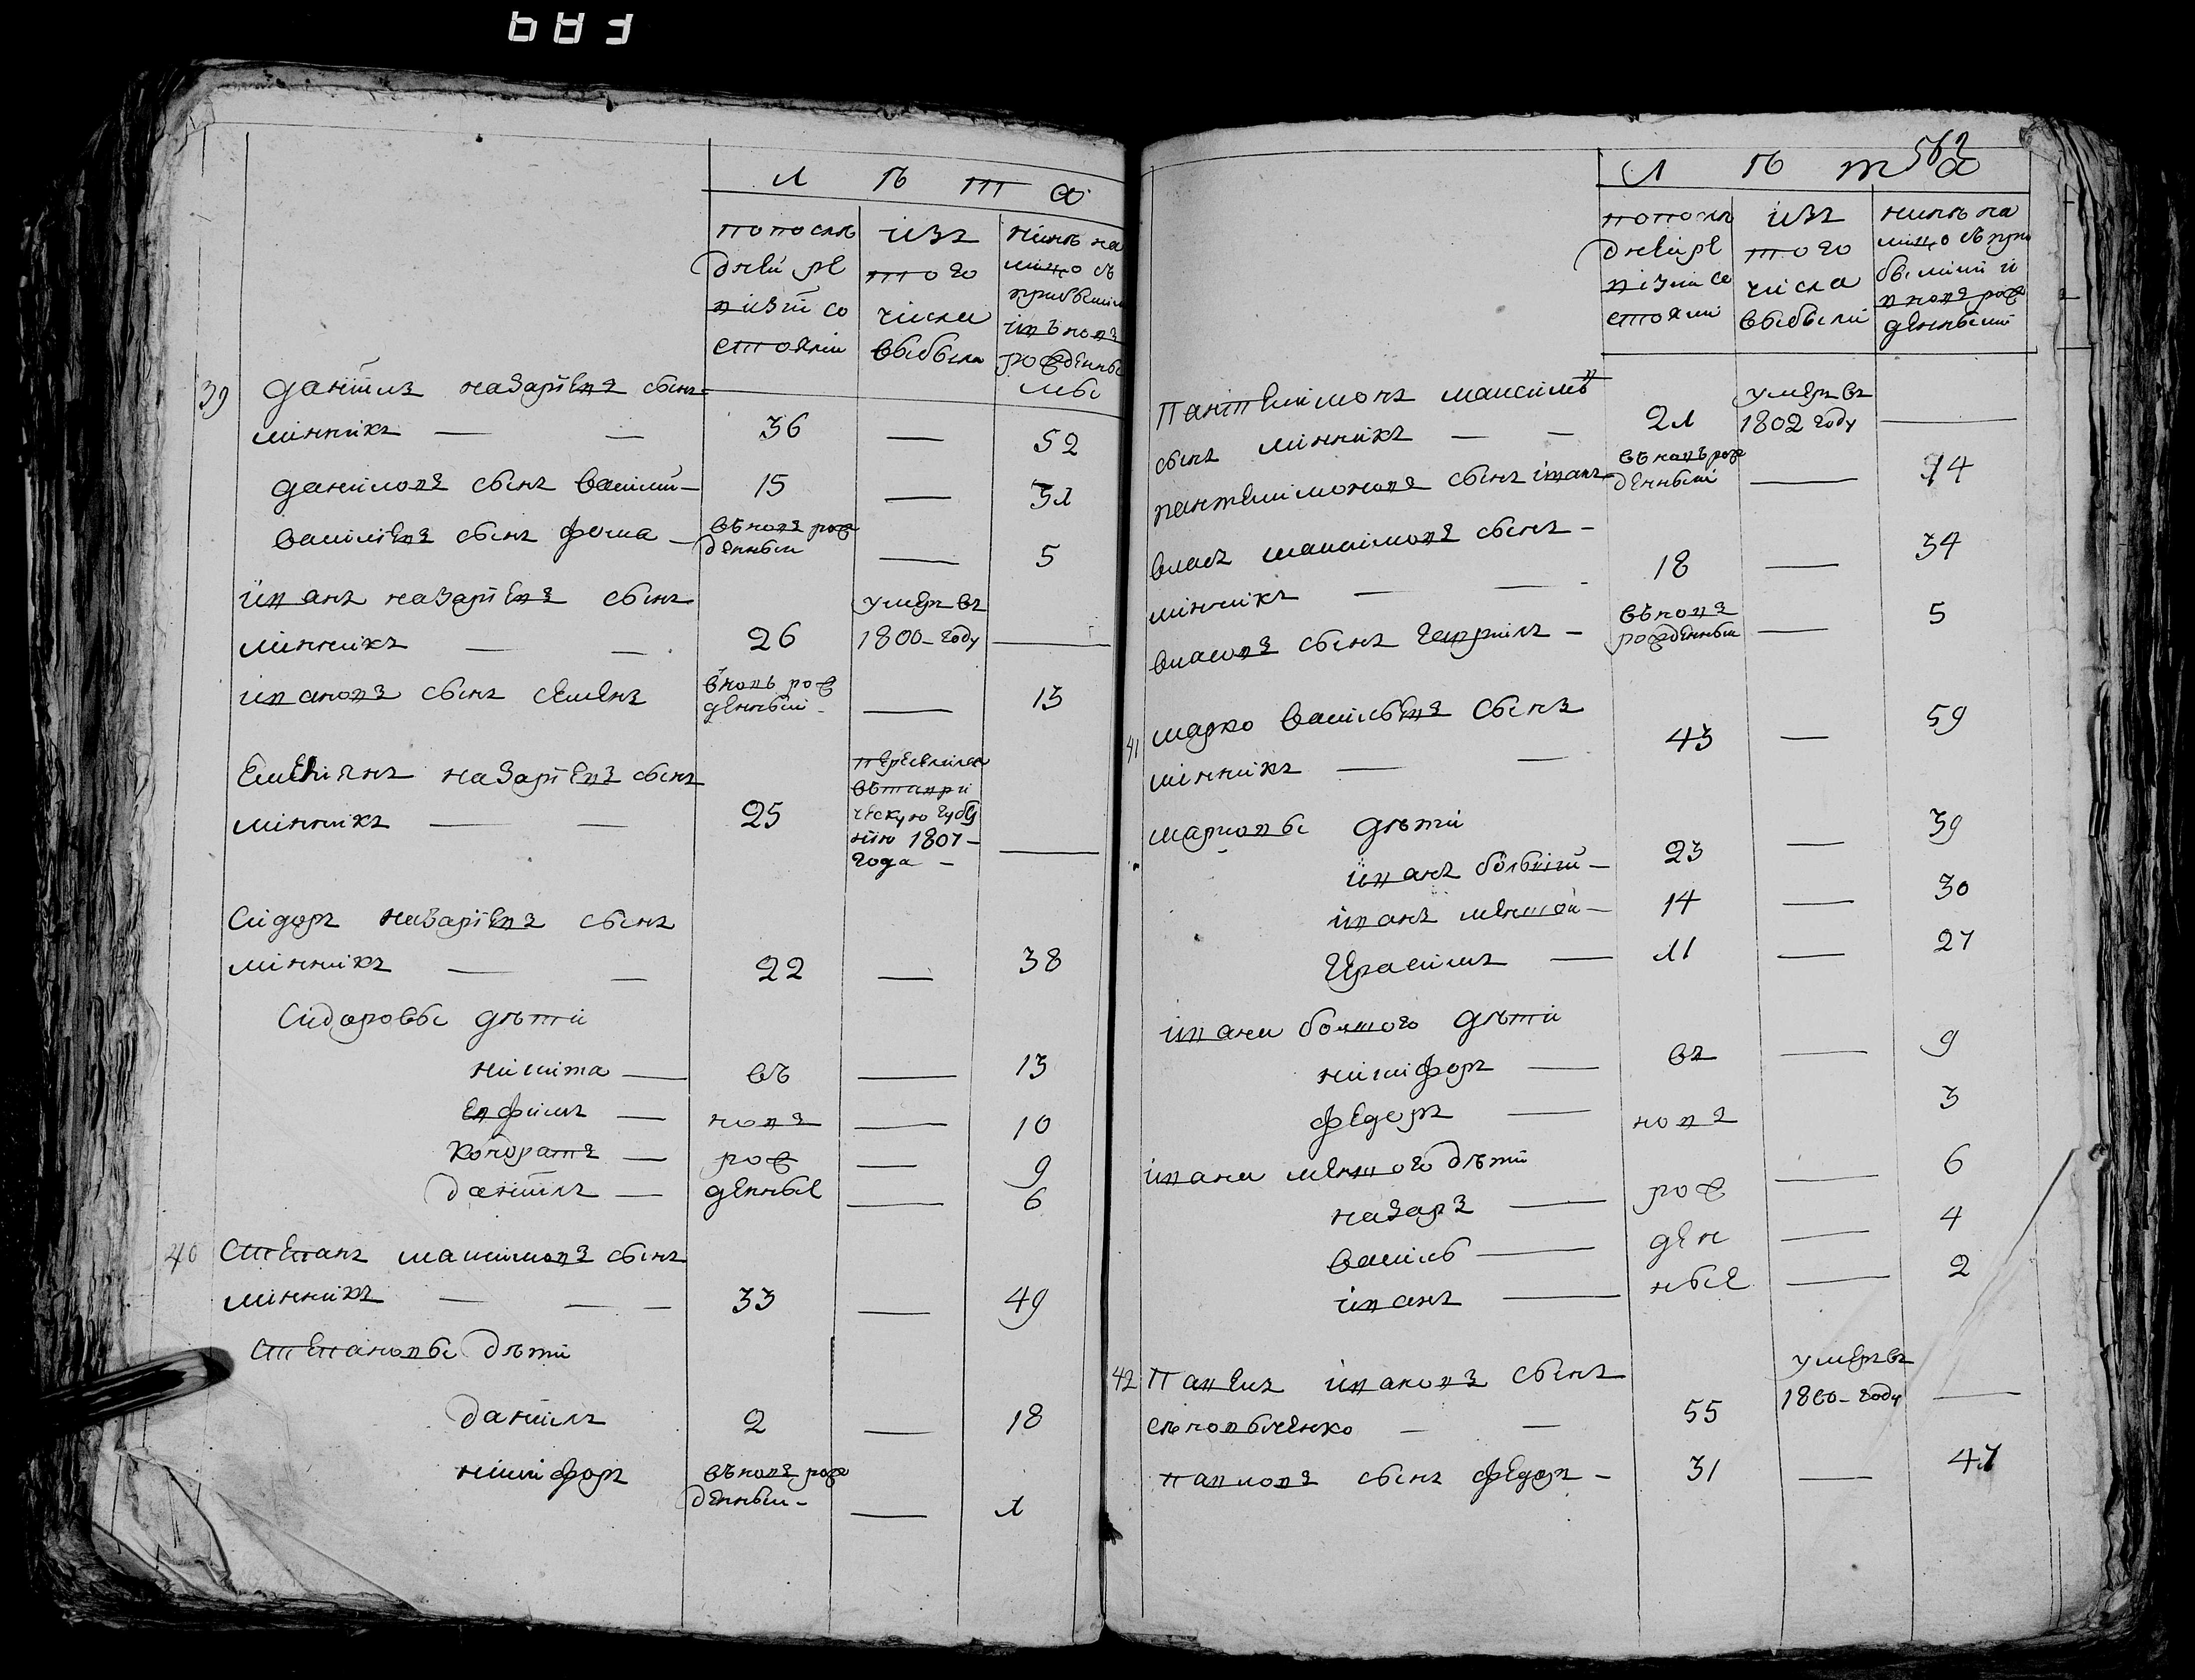 лѣта
по послѣ
дней ре
визiи со
стояли
изъ
того
числа
выбыло
нынѣ на
лицо съ
прибылыми
и вновъ
рожденны
мы
39 Данiилъ назарiевъ сынъ
мiнникъ — — 36 — 52
данiловъ сынъ василiй — 15 — 31
василiевъ сынъ фома — въновъ рож
денный — 5
iванъ назарiевъ сынъ умеръ въ
мiнникъ — — 26 1800 — году —
iвановъ сынъ семенъ вновь рож
денный — — 13
Емелiянъ назарiевъ сынъ
мiнникъ — — 25
переселился
въ таври
ческую губер
нiю 1807 —
года — —
Сидоръ назарiевъ сынъ
мiнникъ — — 22 — 38
Сидоровы дѣти
никита — въ — 13
Евфимъ — новъ — 10
Кондратъ — рож — 9
данiилъ — денные — 6
40 Степанъ максiмовъ сынъ
мiнникъ — — — 33 — 49
Степановы дѣти
данiилъ 2 — 18
никифоръ въновъ рож
денный — —
лѣта
по послѣ
дней ре
визiи со
стояли
изъ
того
числа
выбыли
нынѣ на
лицо съ при
былыми и
вновъ рож
денными
Пантелiимонъ максимовъ умеръ въ
сынъ мiнникъ — — 21 1802 году —
пантелiимоновъ сынъ iванъ — въновь рож
денный — 14
власъ максiмовъ сынъ —
мiнникъ — — 18 — 34
власовъ сынъ гаврилъ — въновъ
рожденный — 5
41 марко васильевъ сынъ
мiнникъ — — 43 — 59
марковы дѣти
iванъ большiй — 23 — 39
iванъ меншой — 14 — 30
Герасимъ — 11 — 27
iвана болшого дѣти
никифоръ — въ — 9
федоръ — новъ 3
iвана меншого дѣти
назаръ — рож — 6
василь — ден — 4
iванъ — ные — 2
42 Павелъ iвановъ сынъ умеръ въ
— — 55 1800 — году —
павловъ сынъ федоръ — 31 — 47